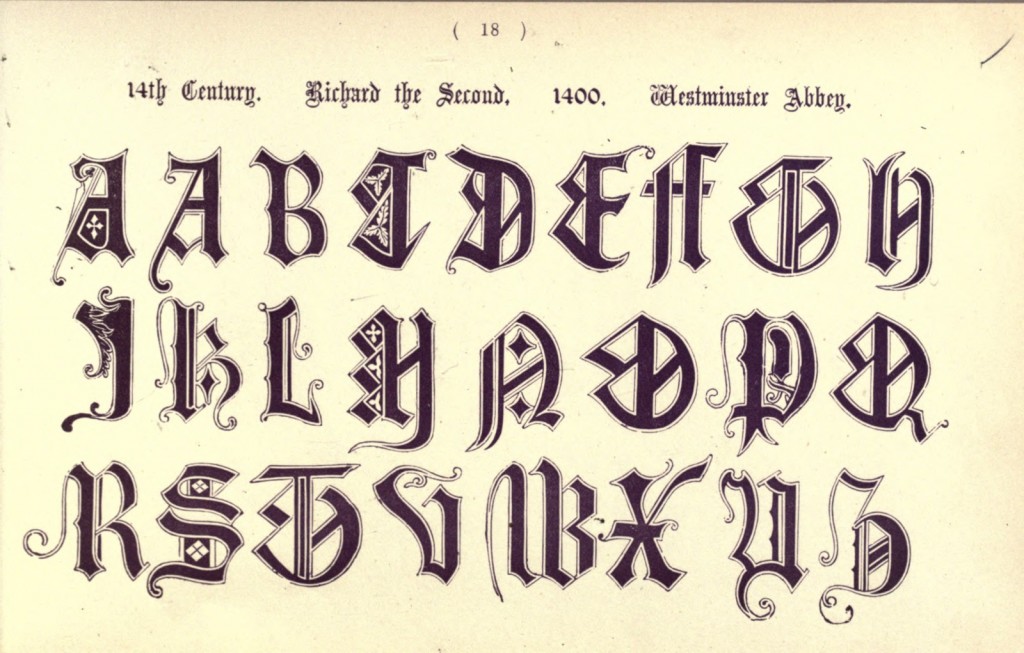 ( 18 )
14th Century. Richard the Second, 1400. Westminster Abbey.
A A B C D E F G H
J K L M N O P Q
R S T V W X Y Z